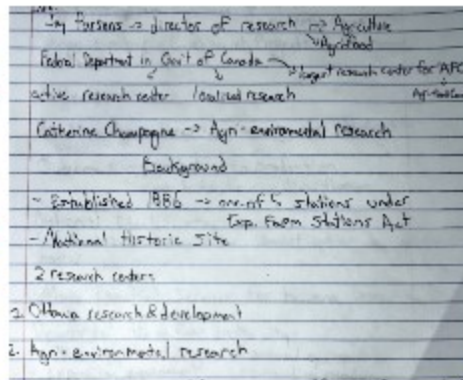 Jay Parsons → director of research → Agriculture
↘ Agrifood
Federal Department in Gov't of Canada → largest research center for AFC
active research center localized research
Catherine Champagne → Agri-enviromental research
Background
- Established 1886 → one of 5 stations under
Exp. Farm Stations Act
- National Historic Site
2 research centers
1. Ottawa research & development
2. Agri-environmental research